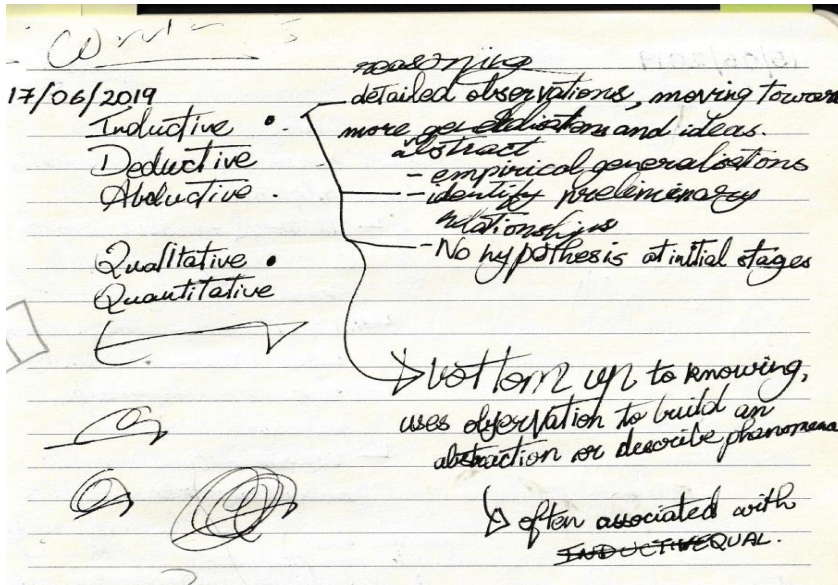 17/06/2019
Inductive
Deductive
Abductive
Qualitative
Quantitative
reasoning
detailed observations, moving toward
more generalisations and ideas.
abstract
- empirical generalisations
- identify preliminary
relationships
- No hypothesis at initial stages
bottom up to knowing,
uses observation to build an
abstraction or describe phenomena
often associated with
INDUCTIVE QUAL.